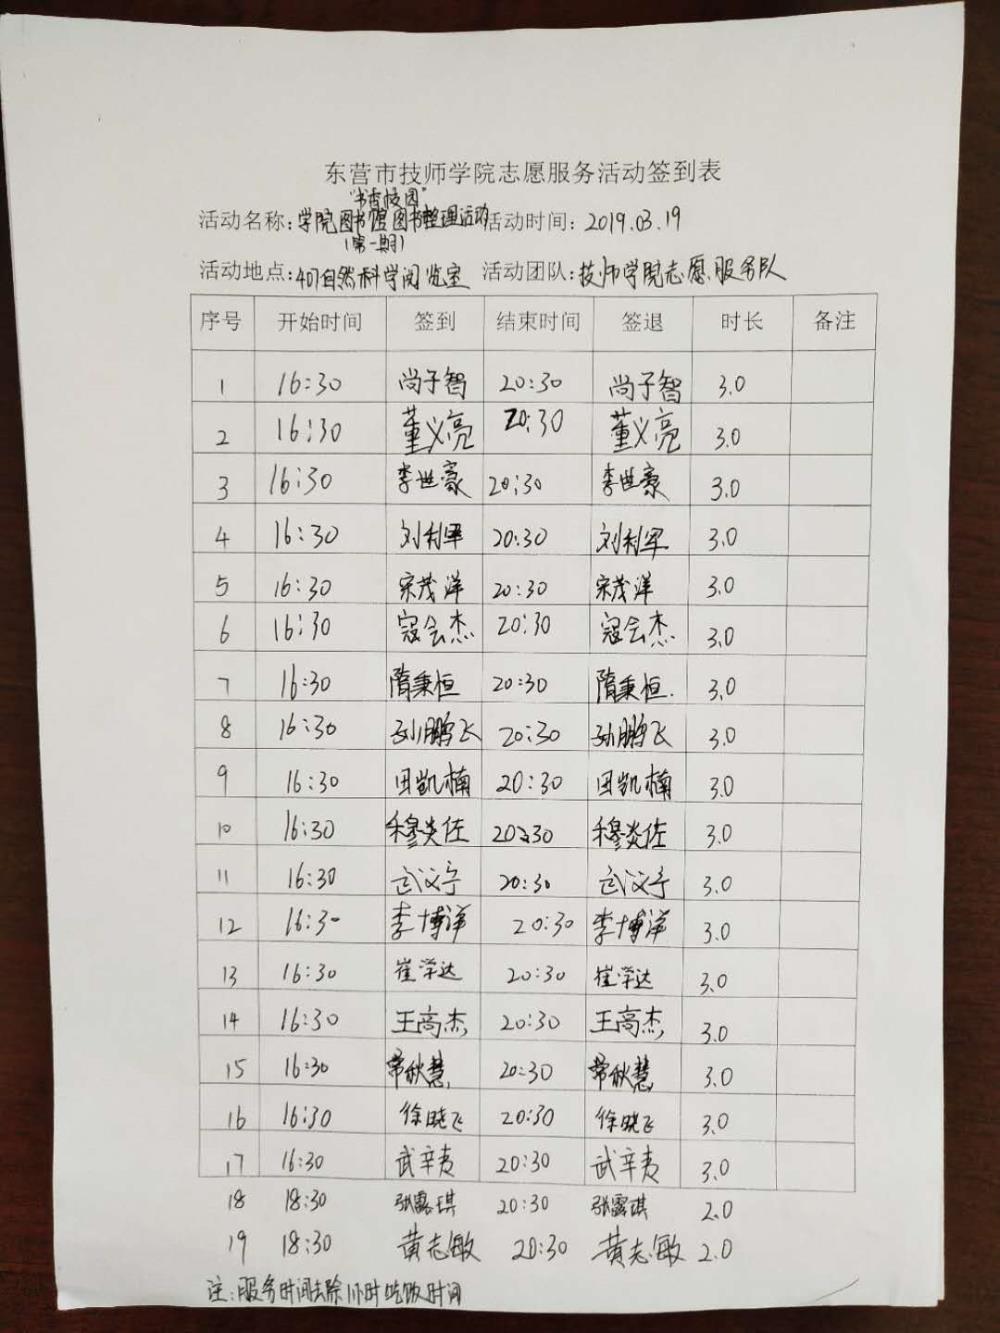 东营市技师学院志愿服务活动签到表
"书香校园"
活动名称:学院图书馆图书整理活动 活动时间: 2019.03.19
(第一期)
活动地点:401自然科学阅览室 活动团队:技师学院志愿服务队
序号 开始时间 签到 结束时间 签退 时长 备注
1 16:30 尚子智 20:30 尚子智 3.0
2 16:30 董义亮 20:30 董义亮 3.0
3 16:30 李世豪 20:30 李世豪 3.0
4 16:30 刘利军 20:30 刘利军 3.0
5 16:30 宋茂洋 20:30 宋茂洋 3.0
6 16:30 寇会杰 20:30 寇会杰 3.0
7 16:30 隋秉恒 20:30 隋秉恒. 3.0
8 16:30 孙鹏飞 20:30 孙鹏飞 3.0
9 16:30 田凯楠 20:30 田凯楠 3.0
10 16:30 穆炎佐 20:30 穆炎佐 3.0
11 16:30 20:30 3.0
12 16:30 李博洋 20:30 李博洋 3.0
13 16:30 崔学达 20:30 崔学达 3.0
14 16:30 王高杰 20:30 王高杰 3.0
15 16:30 常秋慧 20:30 常秋慧 3.0
16 16:30 徐晓飞 20:30 徐晓飞 3.0
17 16:30 武辛夷 20:30 武辛夷 3.0
18 18:30 张露琪 20:30 张露琪 2.0
19 18:30 黄志敏 20:30 黄志敏 2.0
注:服务时间去除1小时吃饭时间